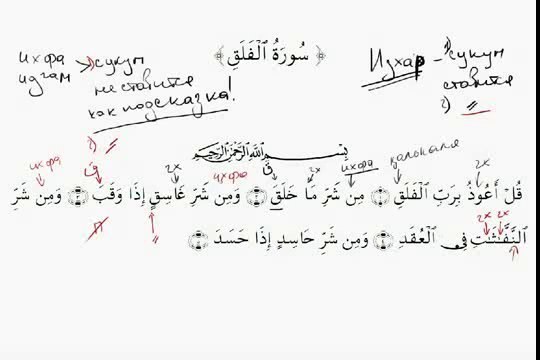 ихфа
идгам
1) сукун
не ставится
как подсказка!
2) =
﴿ سُورَةُ الْفَلَقِ ﴾
Изхар - 1) сукун
ставится
2) =
بِسْمِ اللَّهِ الرَّحْمَٰنِ الرَّحِيمِ
ихфа ق 2х ихфа ق 2х ихфа калькаля 2х
قُلْ أَعُوذُ بِرَبِّ الْفَلَقِ ۝ مِن شَرِّ مَا خَلَقَ ۝ وَمِن شَرِّ غَاسِقٍ إِذَا وَقَبَ ۝ وَمِن شَرِّ
2х 2х
النَّفَّٰثَٰتِ فِي الْعُقَدِ ۝ وَمِن شَرِّ حَاسِدٍ إِذَا حَسَدَ ۝